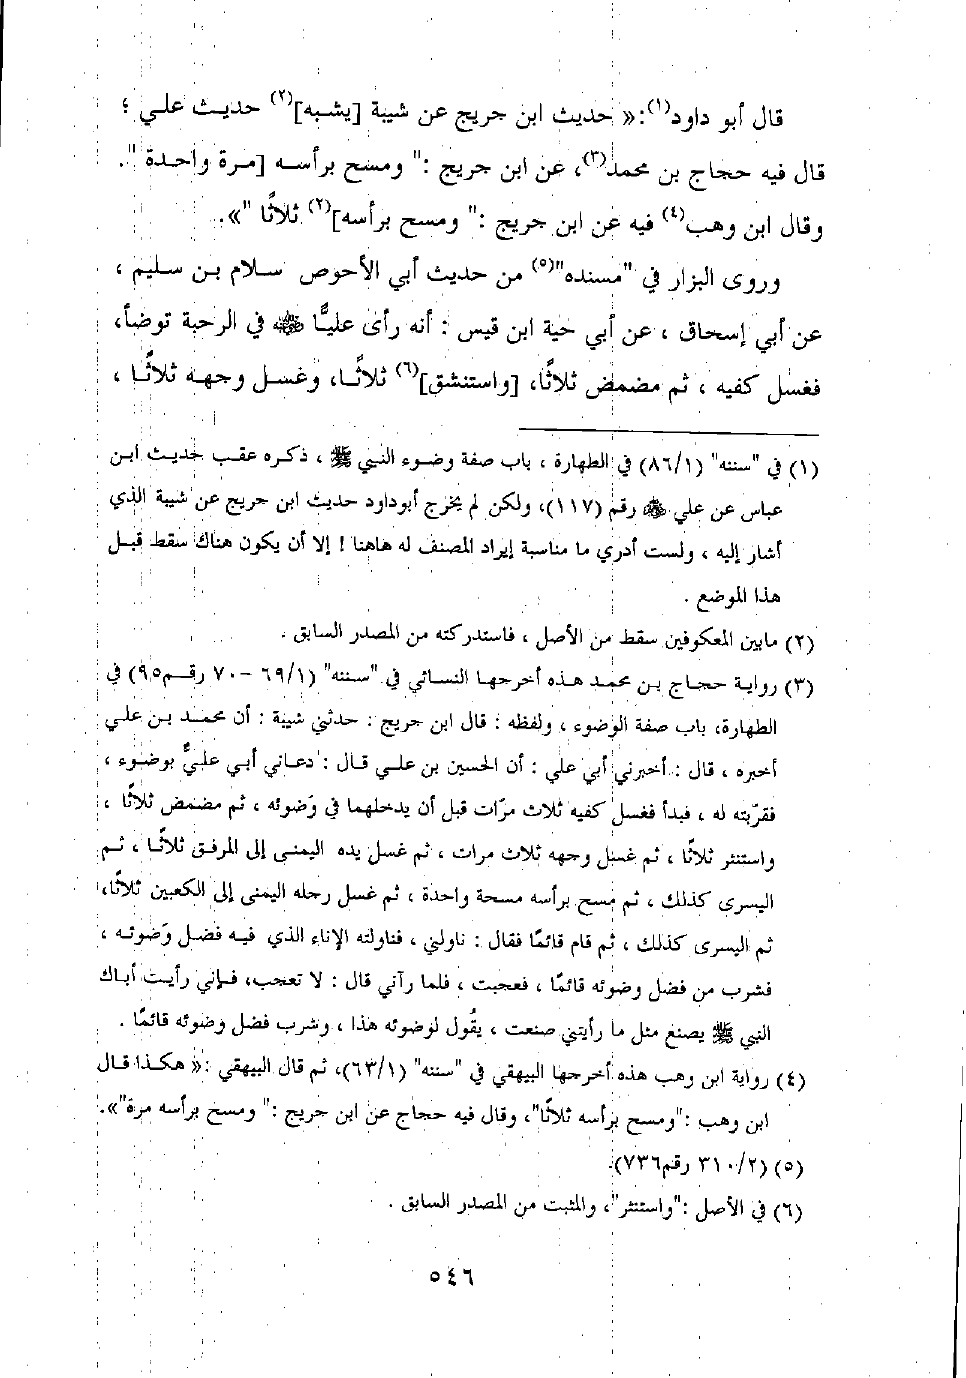 قال أبو داود(١):« حديث ابن جريج عن شيبة [يشبه](٢) حديث علي ؛
قال فيه حجاج بن محمد(٣)، عن ابن جريج :" ومسح برأسه [مرة واحدة ".
وقال ابن وهب(٤) فيه عن ابن جريج :" ومسح برأسه](٢) ثلاثًا "».
وروى البزار في "مسنده"(٥) من حديث أبي الأحوص سلام بن سليم ،
عن أبي إسحاق ، عن أبي حية ابن قيس : أنه رأى عليًّا ﷺ في الرحبة توضأ،
فغسل كفيه ، ثم مضمض ثلاثًا، [واستنشق](٦) ثلاثًا، وغسل وجهه ثلاثًا ،
(١) في "سننه" (٨٦/١) في الطهارة ، باب صفة وضوء النبي ﷺ ، ذكره عقب حديث ابن
عباس عن علي ﷺ رقم (١١٧)، ولكن لم يخرج أبوداود حديث ابن جريج عن شيبة الذي
أشار إليه ، ولست أدري ما مناسبة إيراد المصنف له هاهنا ! إلا أن يكون هناك سقط قبل
هذا الموضع .
(٢) مابين المعكوفين سقط من الأصل ، فاستدركته من المصدر السابق .
(٣) رواية حجاج بن محمد هذه أخرجها النسائي في "سننه" (٦٩/١ -٧٠ رقم٩٥) في
الطهارة، باب صفة الوضوء ، ولفظه : قال ابن جريج : حدثني شيبة : أن محمد بن علي
أخبره ، قال : أخبرني أبي علي : أن الحسين بن علي قال : دعاني أبي عليٌّ بوضوء ،
فقرّبته له ، فبدأ فغسل كفيه ثلاث مرّات قبل أن يدخلهما في وَضوئه ، ثم مضمض ثلاثًا ،
واستنثر ثلاثًا ، ثم غسل وجهه ثلاث مرات ، ثم غسل يده اليمنى إلى المرفق ثلاثًا ، ثم
اليسرى كذلك ، ثم مسح برأسه مسحة واحدة ، ثم غسل رجله اليمنى إلى الكعبين ثلاثًا،
ثم اليسرى كذلك ، ثم قام قائمًا فقال : ناولني ، فناولته الإناء الذي فيه فضل وَضوئه ،
فشرب من فضل وضوئه قائمًا ، فعجبت ، فلما رآني قال : لا تعجب، فإني رأيت أباك
النبي ﷺ يصنع مثل ما رأيتني صنعت ، يقُول لوضوئه هذا ، وشرب فضل وضوئه قائمًا .
(٤) رواية ابن وهب هذه أخرجها البيهقي في "سننه" (٦٣/١)، ثم قال البيهقي :« هكذا قال
ابن وهب :"ومسح برأسه ثلاثًا"، وقال فيه حجاج عن ابن جريج :" ومسح برأسه مرة"».
(٥) (٣١٠/٢ رقم٧٣٦).
(٦) في الأصل :"واستنثر"، والمثبت من المصدر السابق .
٥٤٦